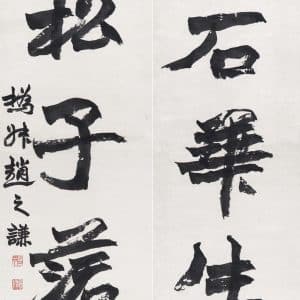 石華
松子落
撝叔趙之謙